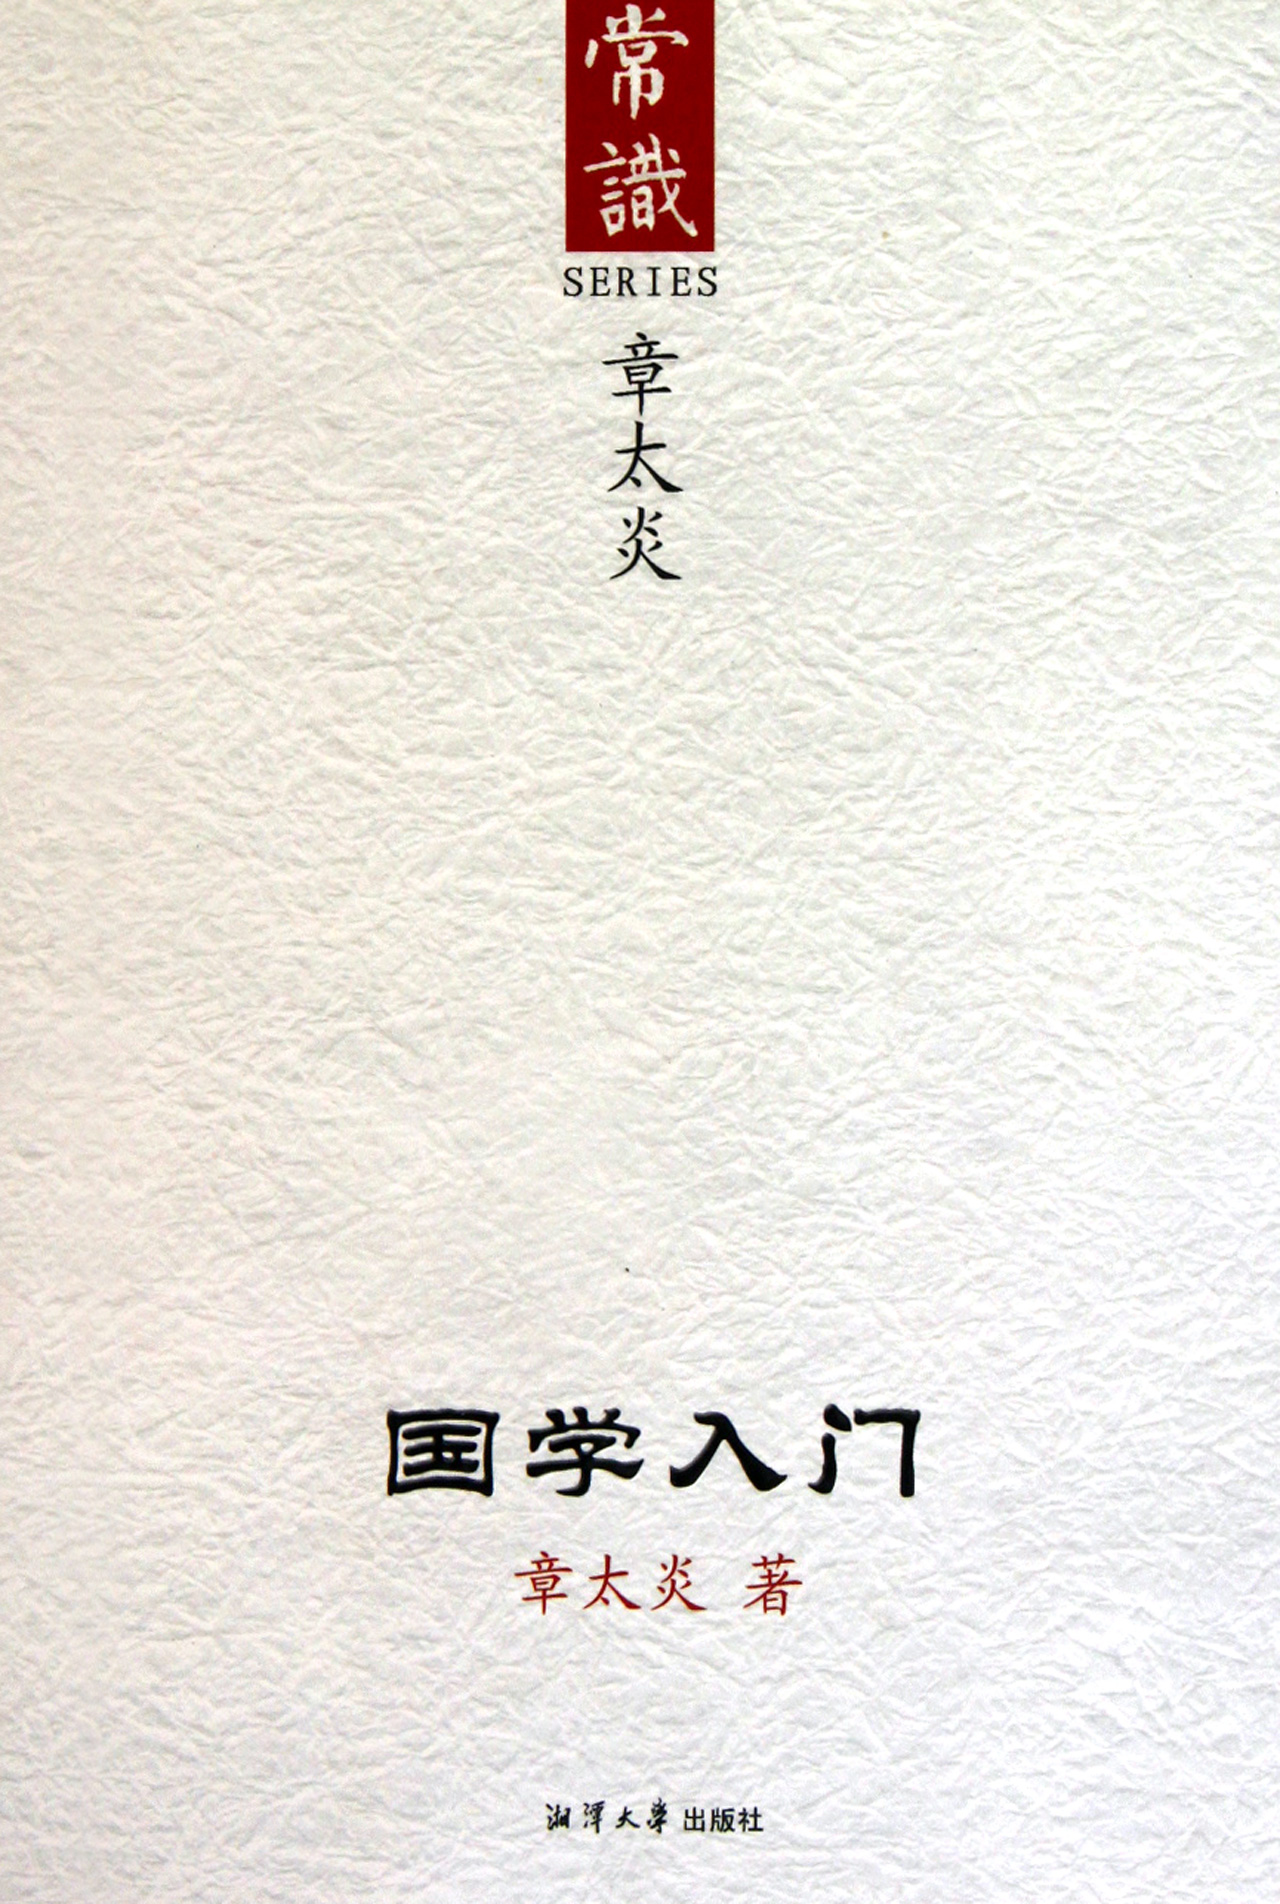 常識
SERIES
章太炎
国学入门
章太炎 著
湘潭大學出版社